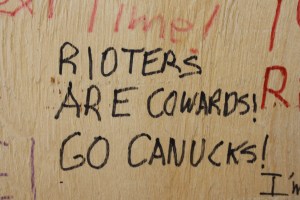 Time!
RIOTERS
ARE COWARDS!
GO CANUCKS!
I'm